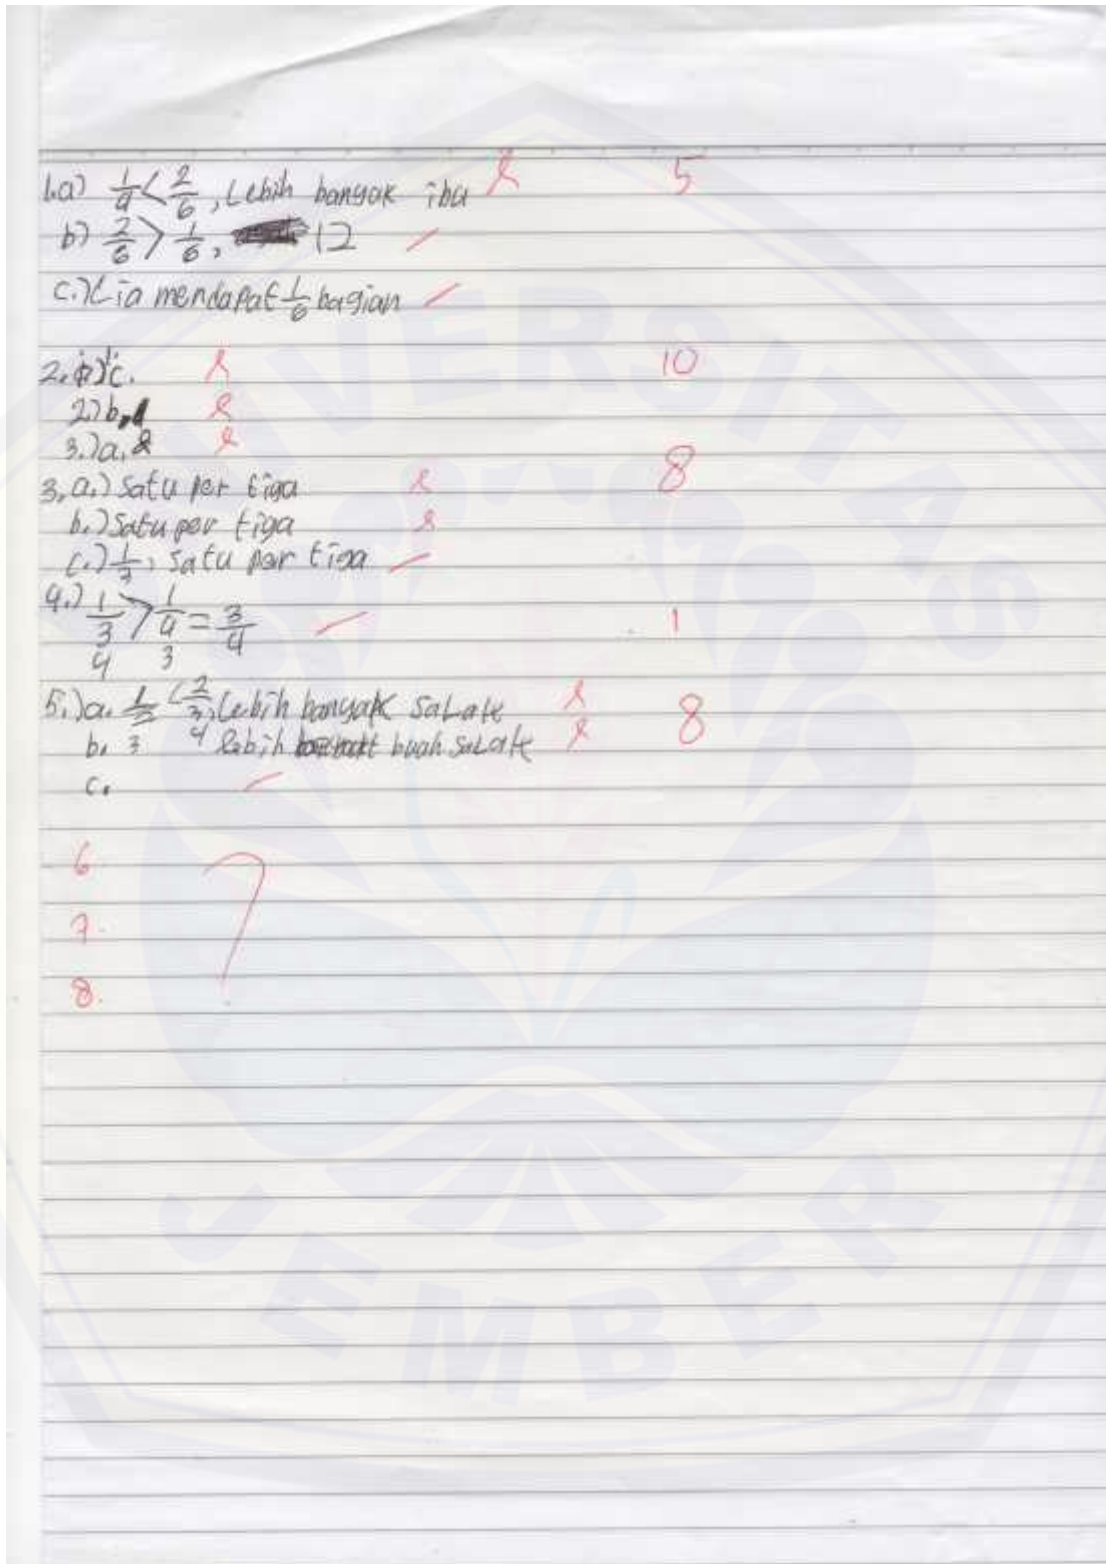 1.a) 1/4 < 2/6, Lebih banyak ibu 5
b) 2/6 > 1/6, 12
c.) Lia mendapat 1/6 bagian
2. c. 10
2.) b,
3.) a,
3, a.) Satu per tiga 8
b.) Satu per tiga
c.) 1/3, Satu per tiga
4.) 1/3 > 1/4 = 3/4 1
4 3
5.) a. < 2/3, Lebih banyak Salak 8
b. 3 4 lebih buah Salak
c.
6.
7.
8.
UNIVERSITAS
JEMBER